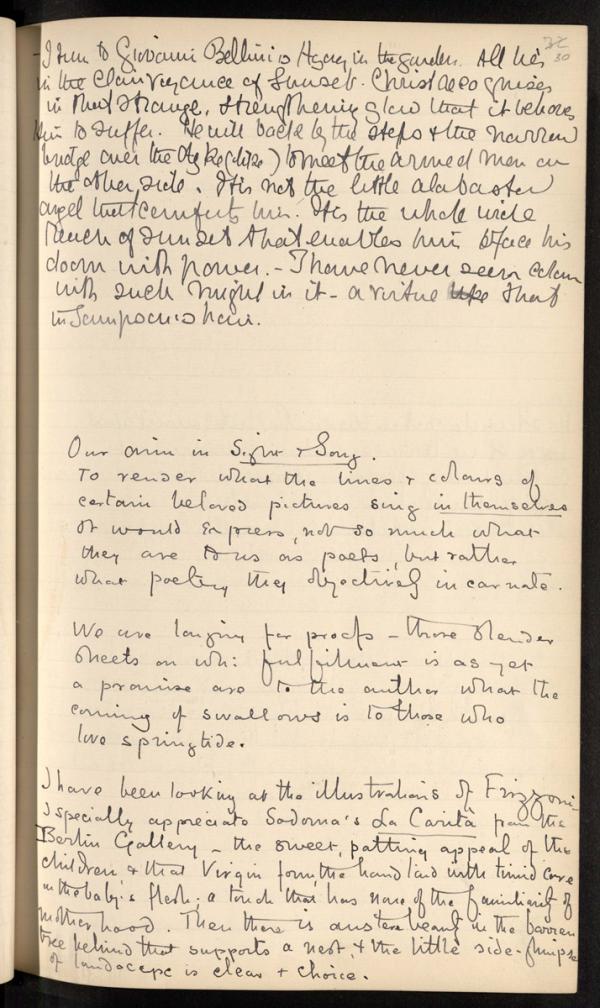 I turn to Giovanni Bellini's Agony in the garden. All lies
in the clairvoyance of Sunset. Christ recognises
in that strange, strengthening glow that it behoves
Him to suffer. He will back by the steps & the narrow
bridge over the dyke (dike) to meet the armed men on
the other side. It is not the little alabaster
angel that comforts him. It is the whole wide
reach of sunset that enables him to face his
doom with power. – I have never seen colour
with such might in it – a virtue like that
in Sampson's hair.
30
Our aim in Sight & Song.
To render what the lines & colours of
certain beloved pictures sing in themselves
It would express, not so much what
they are to us as poets, but rather
what poetry they objectively incarnate.
We are longing for proofs – those slender
sheets on wh: fulfilment is as yet
a promise are to the author what the
coming of swallows is to those who
love springtide.
I have been looking at the illustrations of Frizzoni
I specially appreciate Sodoma's La Carità from the
Berlin Gallery – the sweet, patting appeal of the
children & that Virgin form, the hand laid with timid care
on the baby's flesh; a touch that has none of the familiarity of
motherhood. Then there is austere beauty in the barren
tree behind that supports a nest, & the little side-glimpse
of landscape is clear & choice.